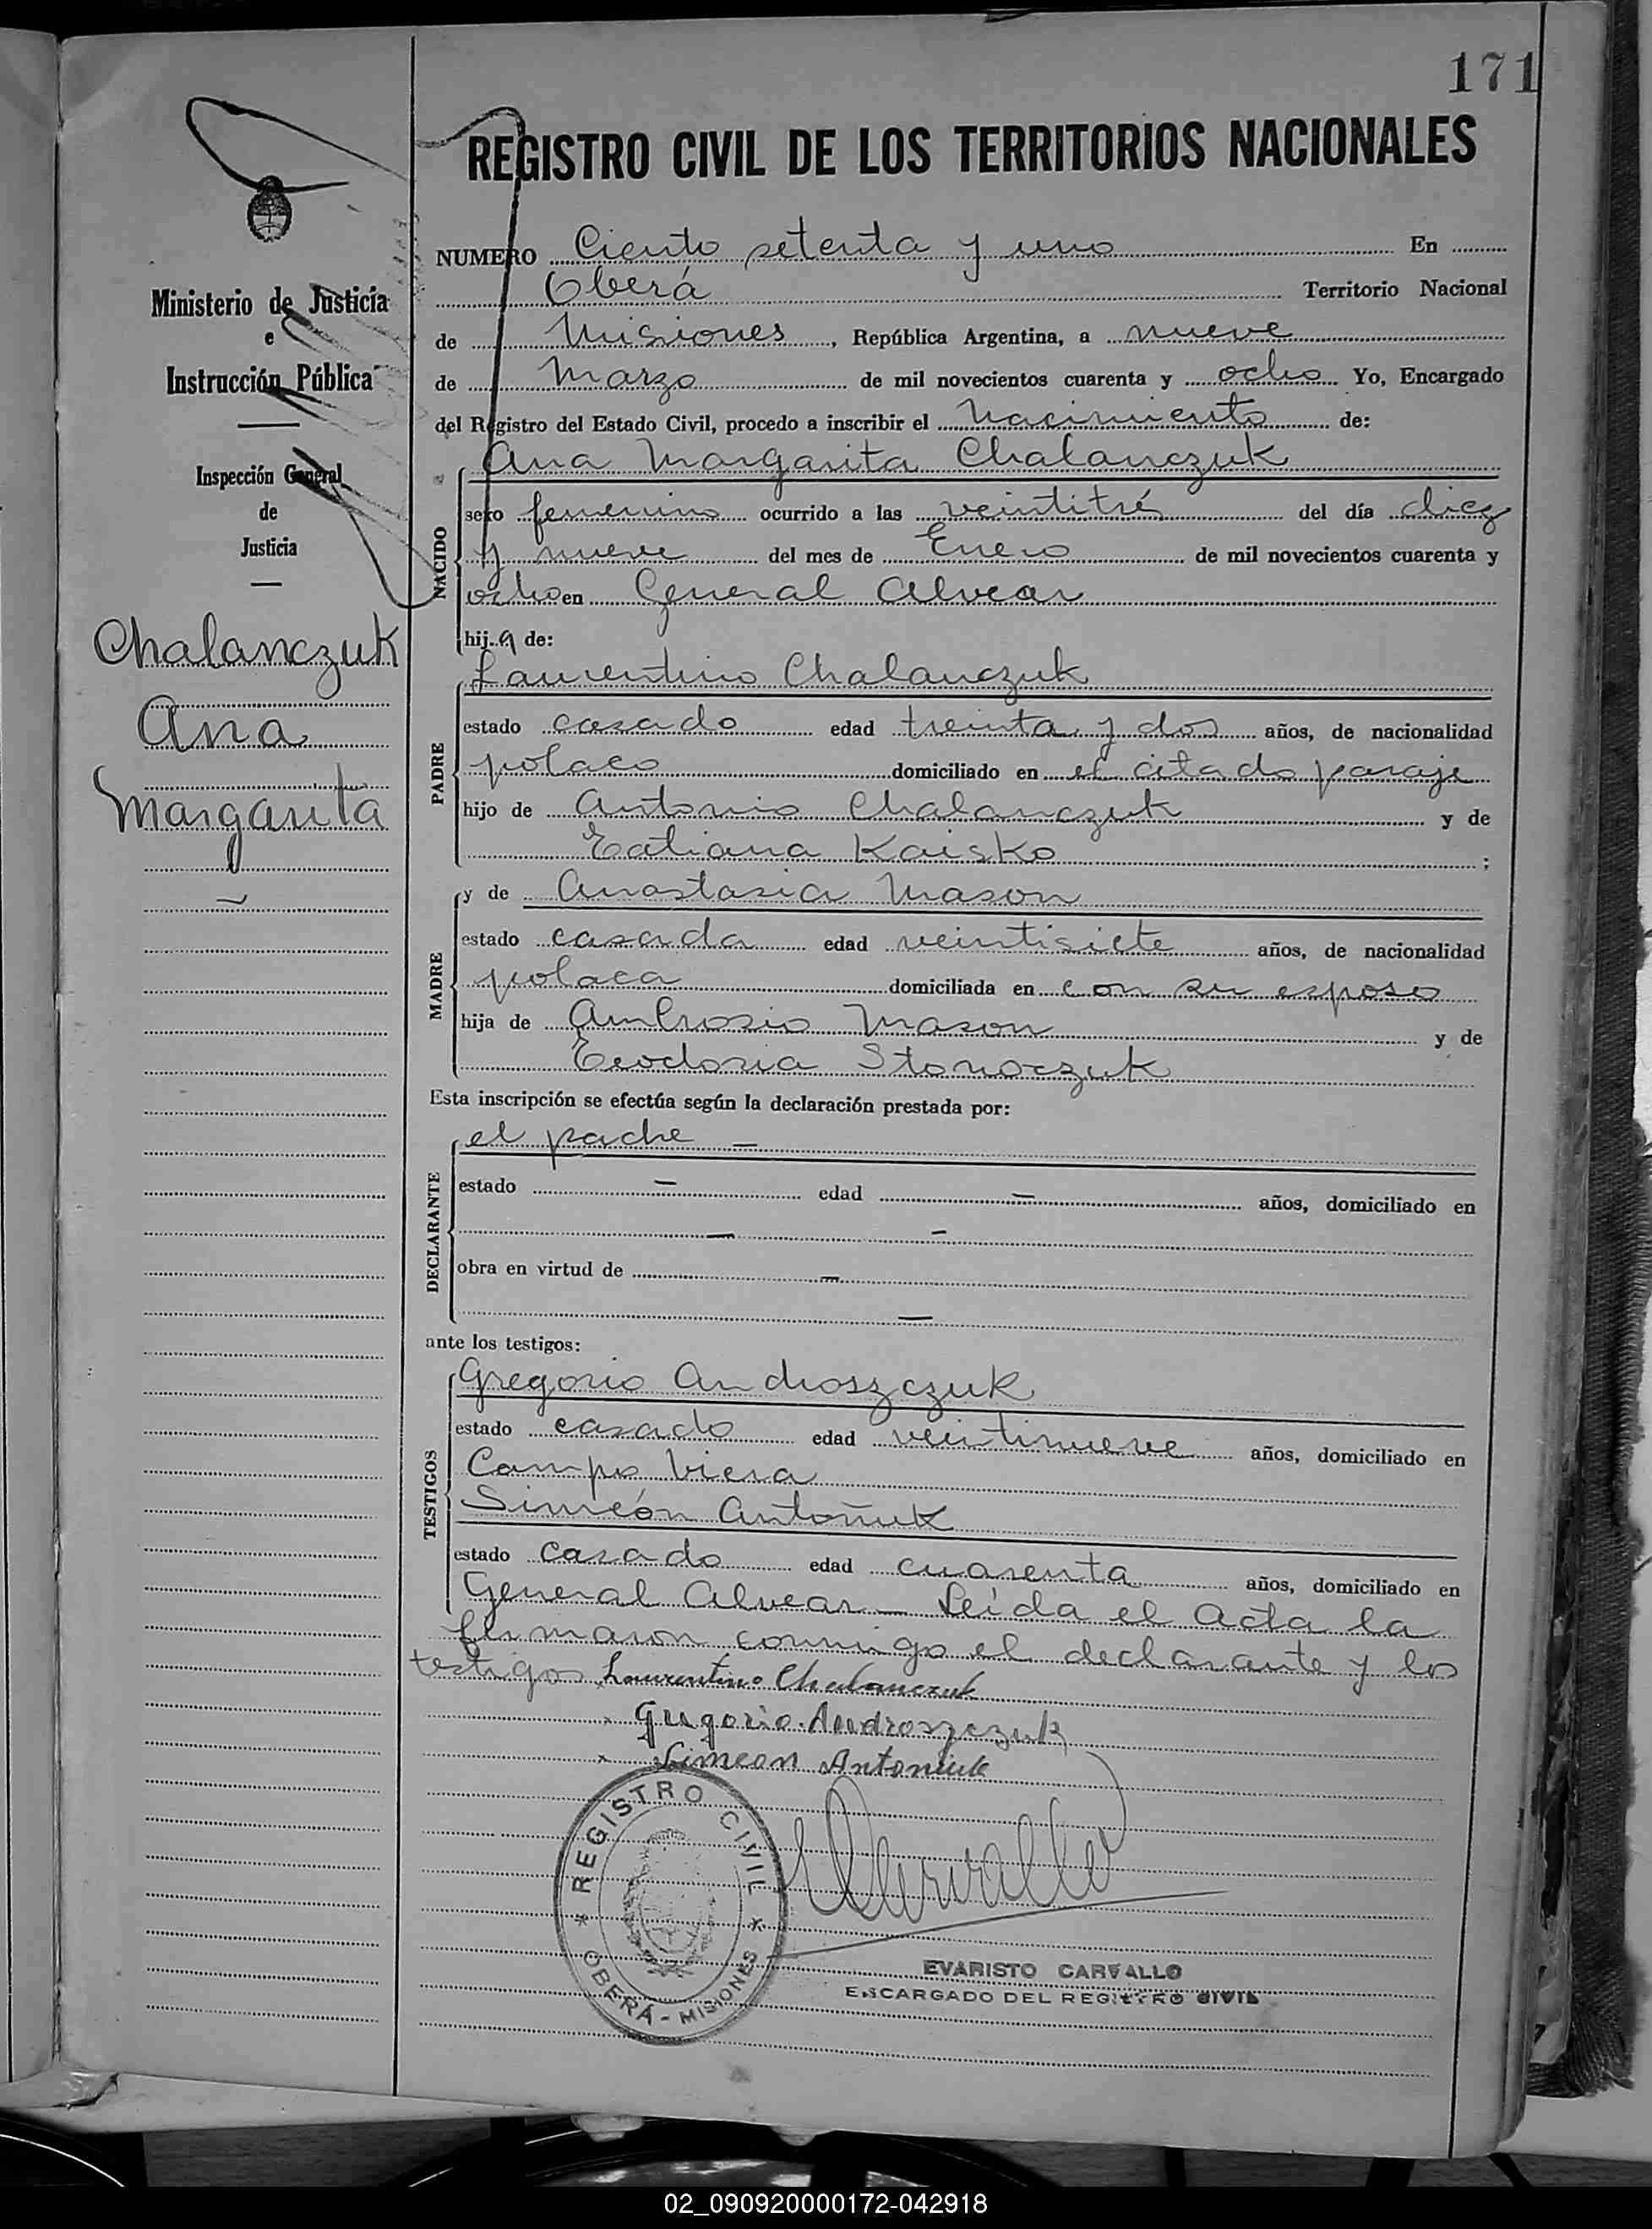 171
REGISTRO CIVIL DE LOS TERRITORIOS NACIONALES
Ministerio de Justicia
e
Instrucción Pública
Inspección General
de
Justicia
Chalanczuk
Ana
Margarita
NUMERO Ciento setenta y uno En
Oberá Territorio Nacional
de Misiones, República Argentina, a nueve
de Marzo de mil novecientos cuarenta y ocho Yo, Encargado
del Registro del Estado Civil, procedo a inscribir el Nacimiento de:
NACIDO
Ana Margarita Chalanczuk
sexo femenino ocurrido a las veintitrés del día diez
y nueve del mes de Enero de mil novecientos cuarenta y
ocho en General Alvear
hija de:
PADRE
Laurentino Chalanczuk
estado casado edad treinta y dos años, de nacionalidad
polaco domiciliado en el citado paraje
hijo de Antonio Chalanczuk y de
Tatiana Kaisko ;
MADRE
y de Anastasia Mason
estado casada edad veintisiete años, de nacionalidad
polaca domiciliada en con su esposo
hija de Ambrosio Mason y de
Teodosia Stonoczuk
Esta inscripción se efectúa según la declaración prestada por:
DECLARANTE
el padre —
estado — edad — años, domiciliado en
— —
obra en virtud de —
—
ante los testigos:
TESTIGOS
Gregorio Androszczuk
estado casado edad veintinueve años, domiciliado en
Campo Viera
Simeón Antoñuk
estado casado edad cuarenta años, domiciliado en
General Alvear — Leída el Acta la
firmaron conmigo el declarante y los
testigos Laurentino Chalanczuk
Gregorio. Androszczuk
Simeon Antoniuk
REGISTRO CIVIL
* OBERÁ - MISIONES *
ECarvallo
EVARISTO CARVALLO
ENCARGADO DEL REGISTRO CIVIL
02_090920000172-042918